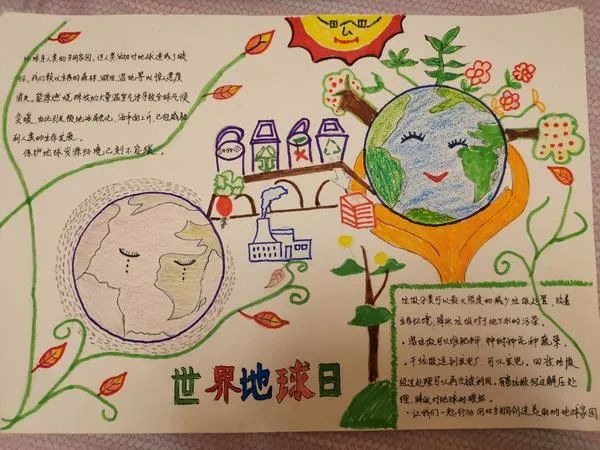 地球是人类的共同家园，但人类活动对地球造成了破
坏，我们赖以生存的森林、湖泊、湿地等以惊人速度
消失，能源燃烧排放的大量温室气体导致全球气候
变暖，由此引发极地冰融化，海平面上升，已经威胁
到人类的生存发展。
保护地球资源环境已刻不容缓。
世界地球日
垃圾分类可以最大限度的减少垃圾处置，改善
生存环境，降低垃圾对于地下水的污染。
·湿垃圾可以堆肥料，种树种花种蔬菜。
·干垃圾送到发电厂可以发电，回收垃圾
经过处理可以再次被利用，有害垃圾经过解压处
理，降低对地球的破坏。
·让我们一起行动用双手创造美丽的地球家园